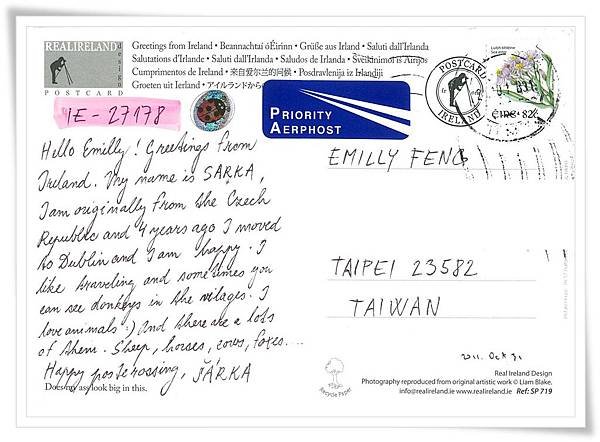 REALIRELAND
design
POSTCARD
Greetings from Ireland • Beannachtaí óÉirinn • Grüße aus Irland • Saluti dall'Irlanda
Salutations d'Irlande • Saluti dall'Irlanda • Saludos de Irlanda • Sveikinimoi is Airijos
Cumprimentos de Irland • 来自爱尔兰的问候 • Postdravlenija iz Irlandiji
Groeten uit Ierland • アイルランドから
IE-27178
PRIORITY
AERPHOST
POSTCARD
IRELAND
ÉIRE 82c
Hello Emilly! Greetings from
Ireland. My name is SARKA,
I am originally from the Czech
Republic and 4 years ago I moved
to Dublin and I am happy. I
like traveling and sometimes you
can see donkeys in the vilages. I
love animals :) And there are a lots
of them. Sheep, horses, cows, foxes...
Happy postcrossing, ŠÁRKA
Does my ass look big in this.
EMILLY FENG
TAIPEI 23582
TAIWAN
2011. Oct 31
Recycle Paper
Real Ireland Design
Photography reproduced from original artistic work © Liam Blake.
info@realireland.ie www.realireland.ie Ref: SP 719